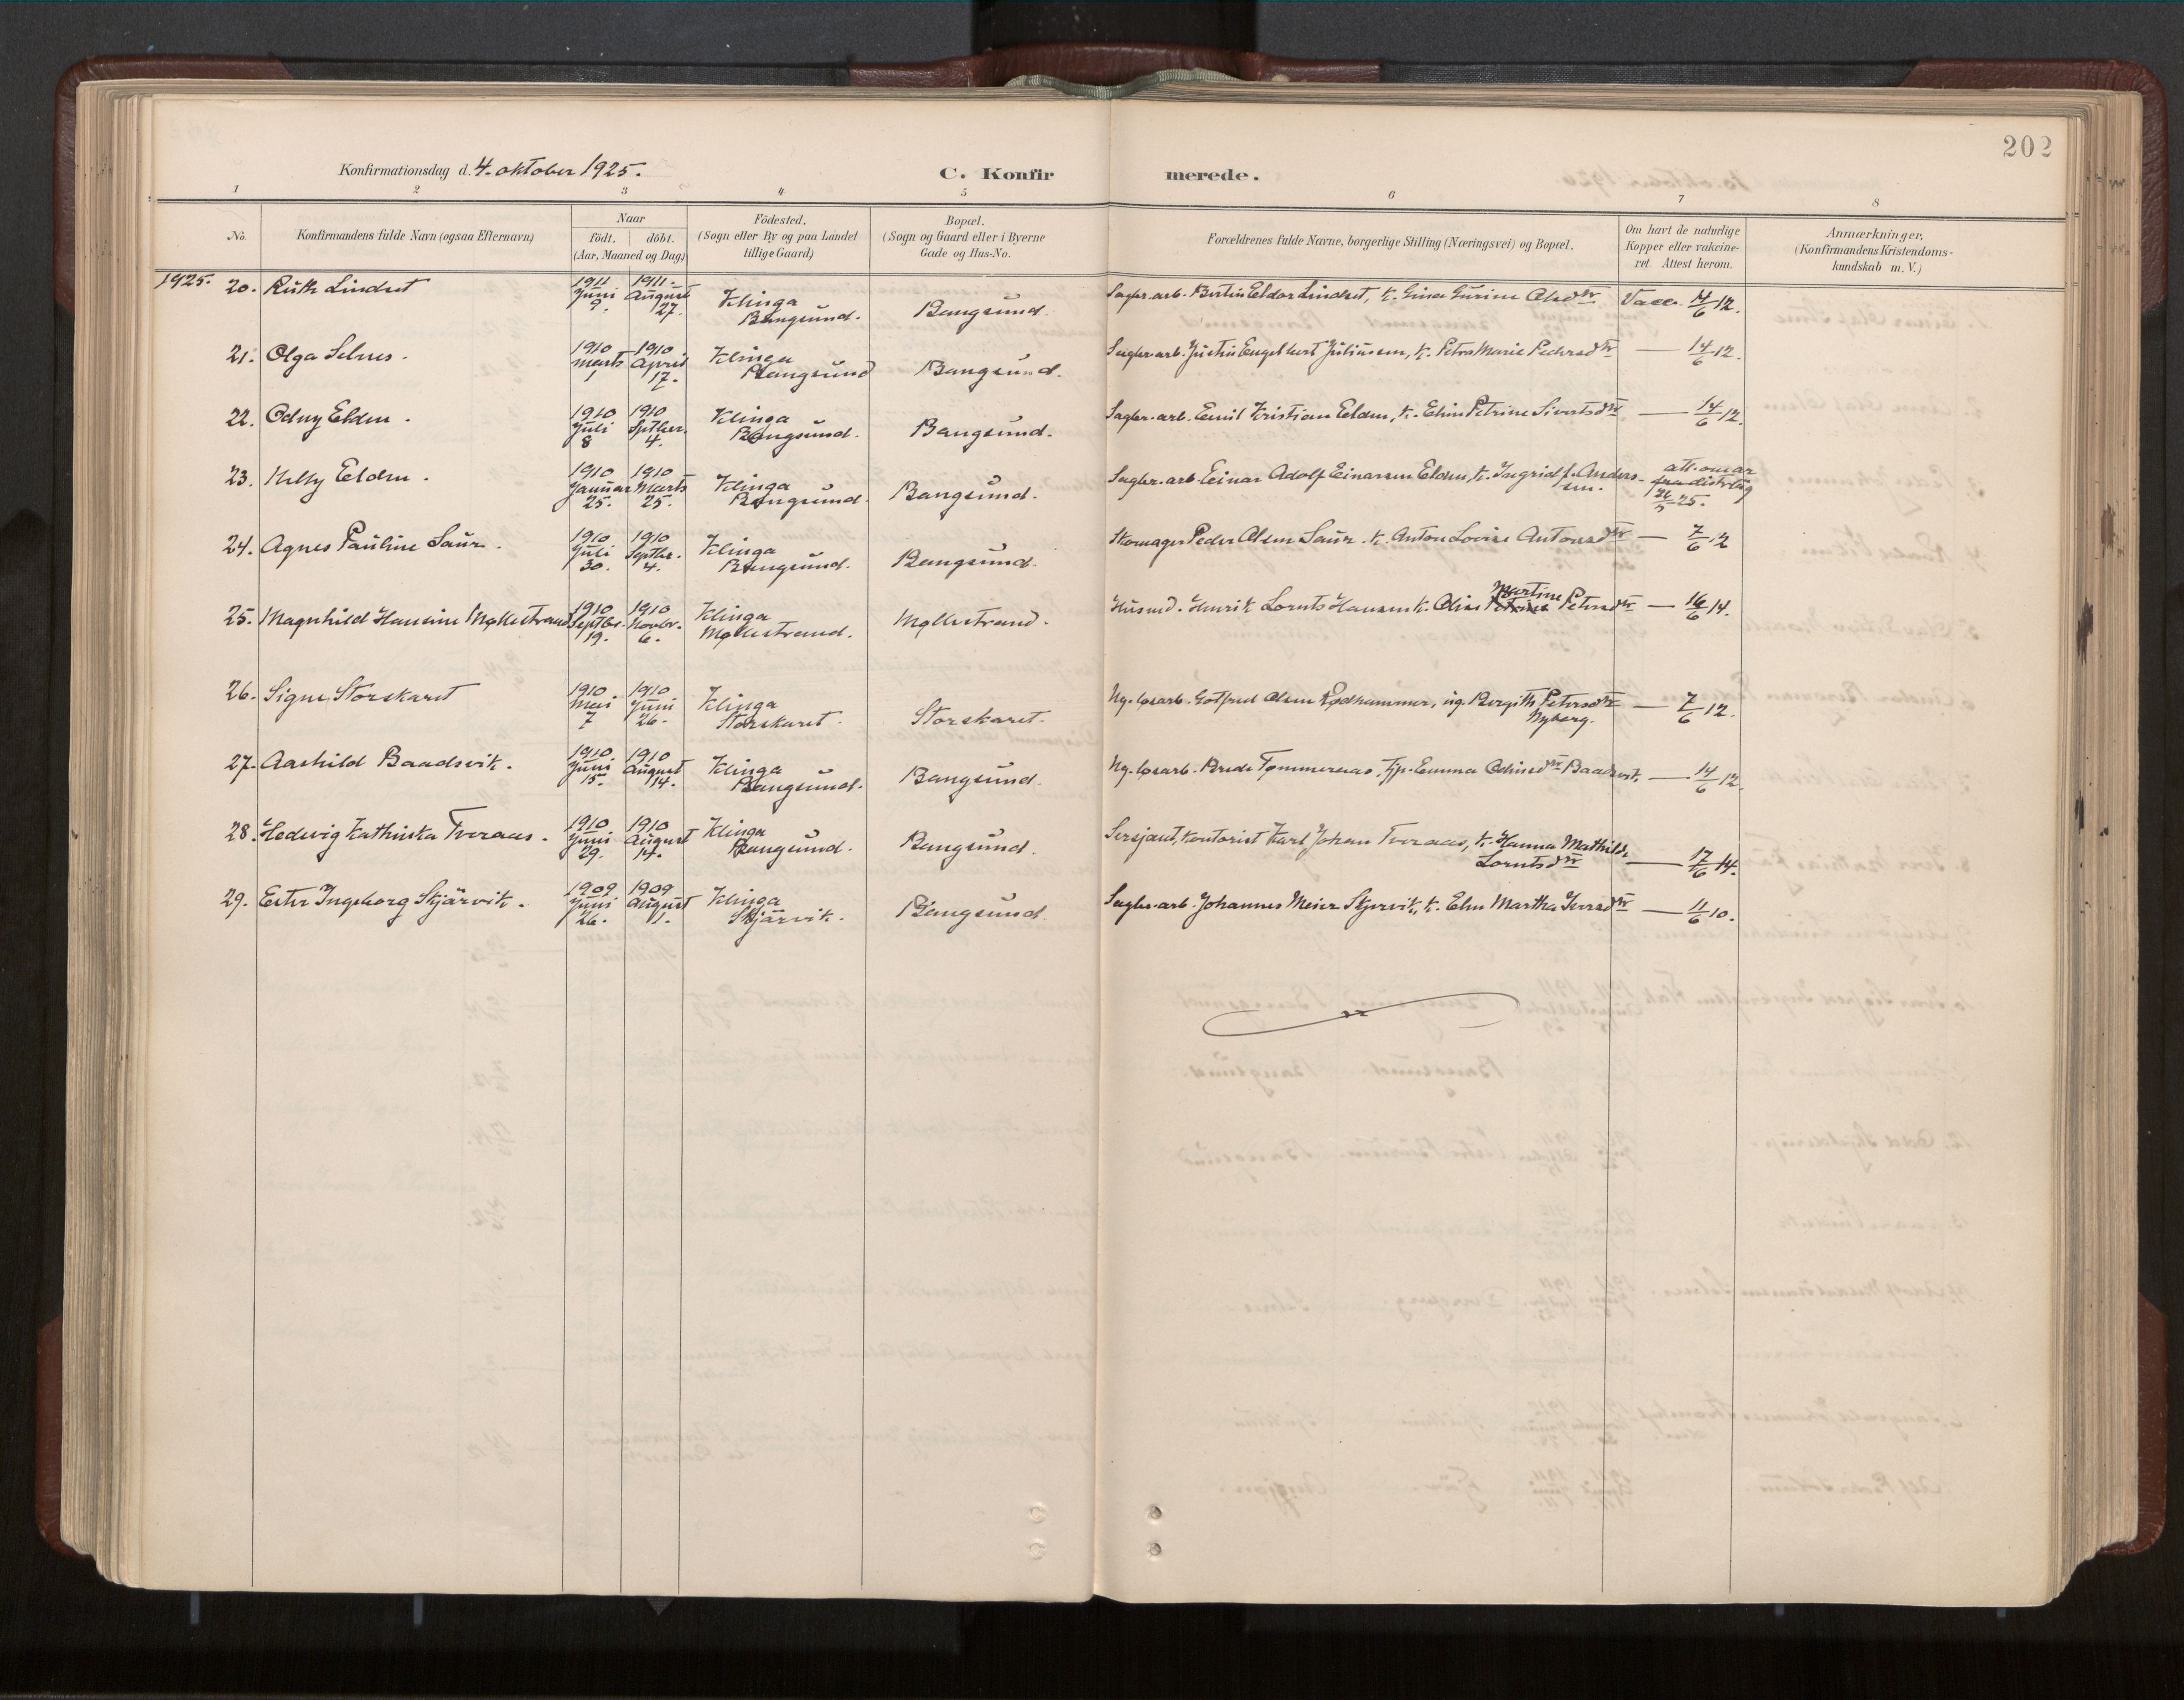 202
Konfirmationsdag d. 4. oktober 1925.
C. Konfirmerede.
1 2 3 4 5 6 7 8
No.
Konfirmandens fulde Navn (ogsaa Efternavn)
Naar
födt. döbt.
(Aar, Maaned og Dag)
Födested.
(Sogn eller By og paa Landet
tillige Gaard)
Bopæl.
(Sogn og Gaard eller i Byerne
Gade og Hus-No.
Forældrenes fulde Navne, borgerlige Stilling (Næringsvei) og Bopæl.
Om havt de naturlige
Kopper eller vakcine-
ret. Attest herom.
Anmærkninger,
(Konfirmandens Kristendoms-
kundskab m. V.)
1925. 20. Ruth Lindset 1911 Juni 1911 August 27. Klinga Bangsund. Bangsund. Sagbr.arb. Bertin Eldor Lindset, k. Gina Gurine Olsdtr Vacc. 14/6 12.
21. Olga Selnes. 1910 Marts 1 1910 April 17. Klinga Bangsund Bangsund. Sagbr.arb. Justin Engelbert Juliussen, k. Petra Marie Pedersdtr — 14/6 12.
22. Odny Elden. 1910 Juli 8 1910 Septber. 4. Klinga Bangsund. Bangsund. Sagbr.arb. Emil Kristian Elden, k. Elin Petrine Sivertsdtr — 14/6 12.
23. Nelly Elden. 1910 Januar 25. 1910 Marts 25. Klinga Bangsund. Bangsund. Sagbr.arb. Einar Adolf Einarsen Elden, k. Ingrid f. Anderssen. att. om ar fra distrlæg 25.
24. Agnes Pauline Saur. 1910 Juli 30. 1910 Septbr. 4. Klinga Bangsund. Bangsund. Skomager Peder Olsen Saur. k. Anton Lovise Antonsdtr — 7/6 12
25. Magnhild Hansine Møllestrand 1910 Septbr. 19. 1910 Novbr. 6. Klinga Møllestrand. Møllestrand. Husmd. Henrik Lornts Hansen k. Oline Martine Petersdtr — 16/6 14.
26. Signe Storskaret 1910 Mai 7 1910 Juni 26. Klinga Storskaret. Storskaret. Ng. løsarb. Gotfred Olsen Rødhammer, ug. Bergith Petersdtr Nyberg. — 7/6 12.
27. Aashild Baadsvik. 1910 Juni 15. 1910 August 14. Klinga Bangsund. Bangsund. Ng. løsarb. Peder Tømmeraas, Tjp. Emma Odinsdtr Baadsvik — 14/6 12.
28. Hedevig Kathinka Tveraas. 1910 Juni 29. 1910 August 14. Klinga Bangsund. Bangsund. Sersjant, kontorist Karl Johan Tveraas, k. Hanna Mathilde Lorntsdtr — 17/6 14.
29. Ester Ingeborg Skjärvik. 1909 Juni 26. 1909 August 1. Klinga Skjärvik. Bangsund Sagbr.arb. Johannes Meier Skjervik, k. Elen Martha Iversdtr — 11/6 10.